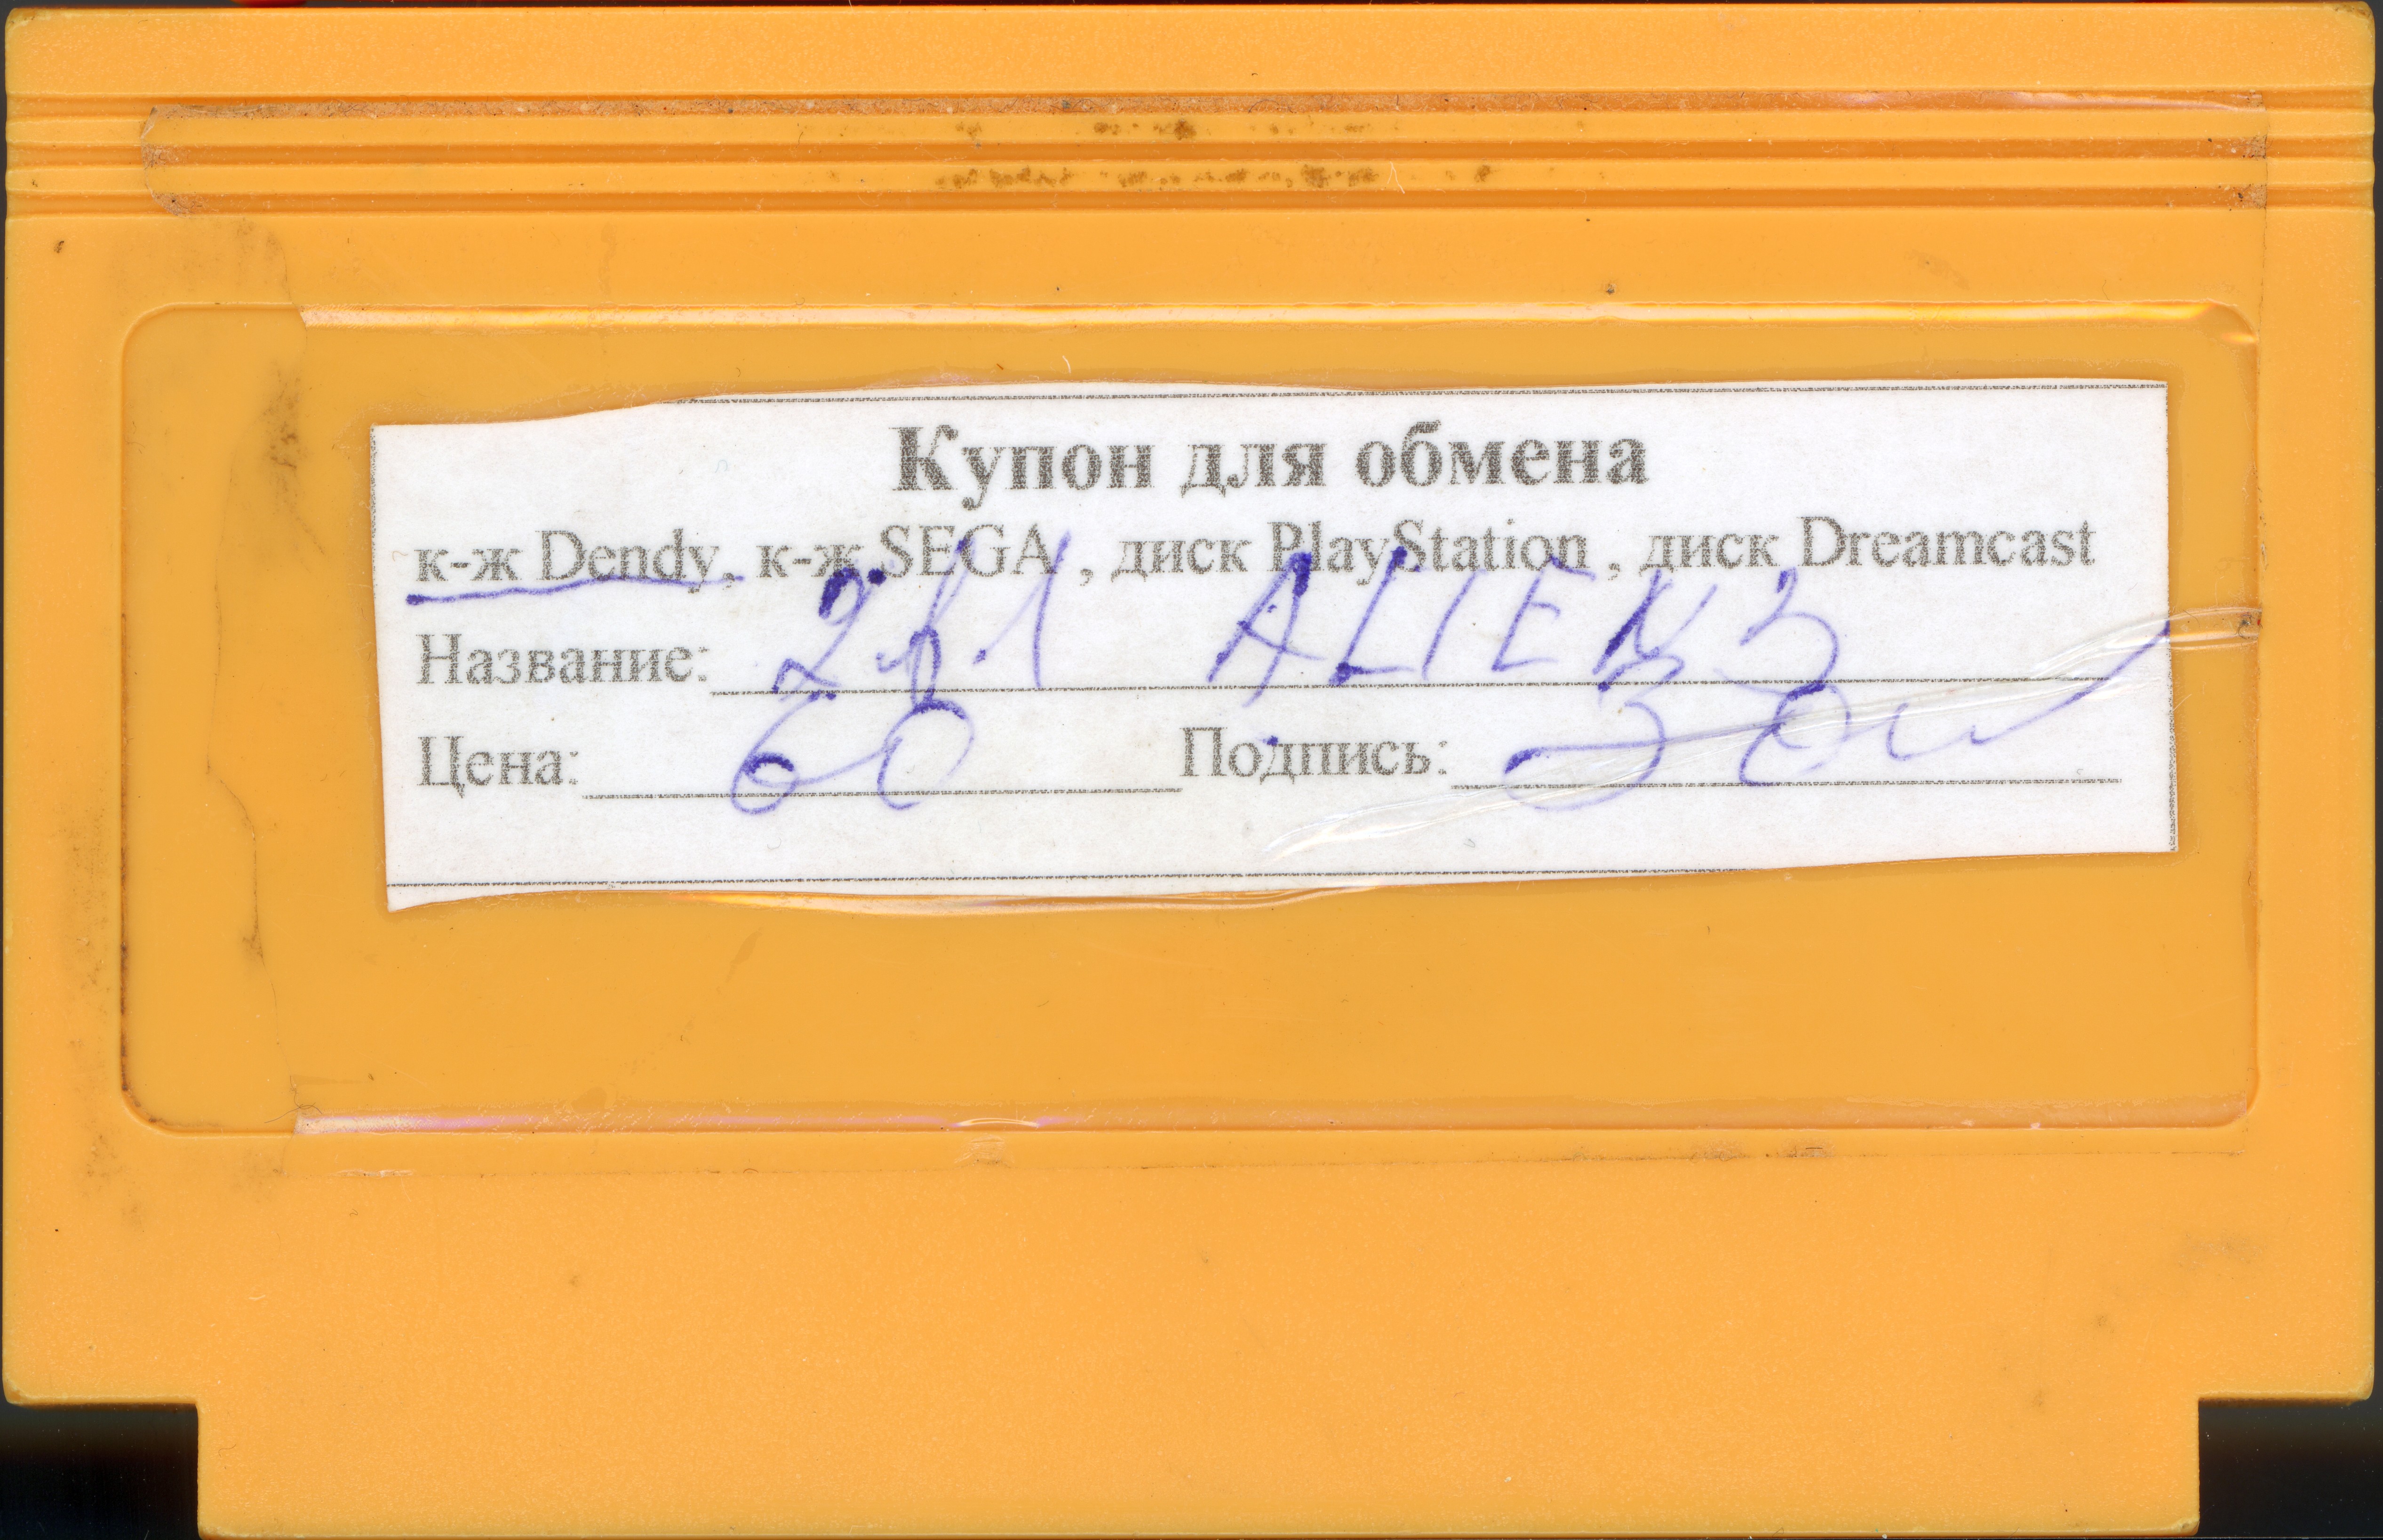 Купон для обмена
к-ж Dendy, к-ж SEGA , диск PlayStation , диск Dreamcast
Название: 2в1 ALIEN 3
Цена: 60 Подпись: